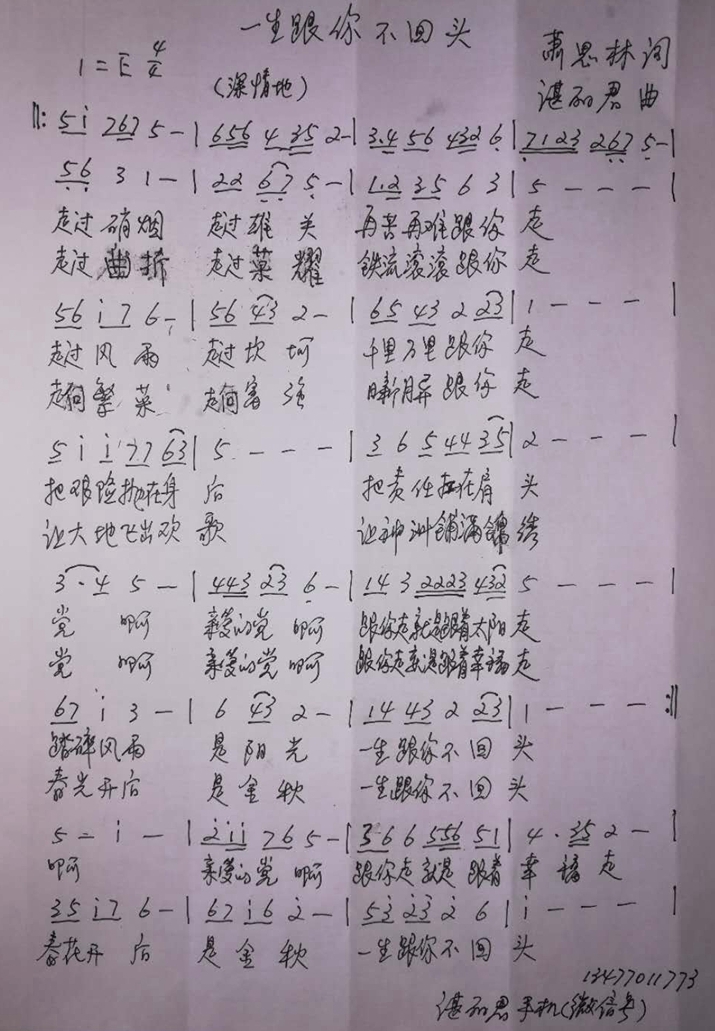 一生跟你不回头
1=E 4/4
(深情地)
萧思林 词
谌丽君 曲
‖: 5i 767 5 - | 656 4 35 2 - | 3.4 56 432 6 | 7123 267 5 - |
56 3 1 - | 22 67 5 - | 1.2 35 6 3 | 5 - - - |
走过硝烟 走过雄关 再苦再难跟你 走
走过曲折 走过荣耀 铁流滚滚跟你 走
56 i7 6 - | 56 43 2 - | 65 43 2 23 | 1 - - - |
走过风雨 走过坎坷 千里万里跟你 走
走向繁荣 走向富强 跟你 走
5 i i 77 63 | 5 - - - | 3 6 5 44 35 | 2 - - - |
把艰险抛在身 后 把责任扛在肩 头
让大地飞出欢 歌 让神洲铺满锦 绣
3·4 5 - | 443 23 6 - | 14 3 2223 432 | 5 - - - |
党 啊 亲爱的党 啊 跟你走就是跟着太阳走
党 啊 亲爱的党 啊 跟你走就是跟着幸福走
67 i 3 - | 6 43 2 - | 14 43 2 23 | 1 - - - :‖
踏碎风雨 是阳光 一生跟你不回 头
春光开后 是金秋 一生跟你不回 头
5 - i - | 2ii 76 5 - | 36 6 556 51 | 4 · 35 2 - |
啊 亲爱的党 啊 跟你走就是 跟着 幸福走
35 i7 6 - | 67 i6 2 - | 53 23 2 6 | i - - - |
春花开后 是金秋 一生跟你不回 头
13477011773
谌丽君手机(微信号)